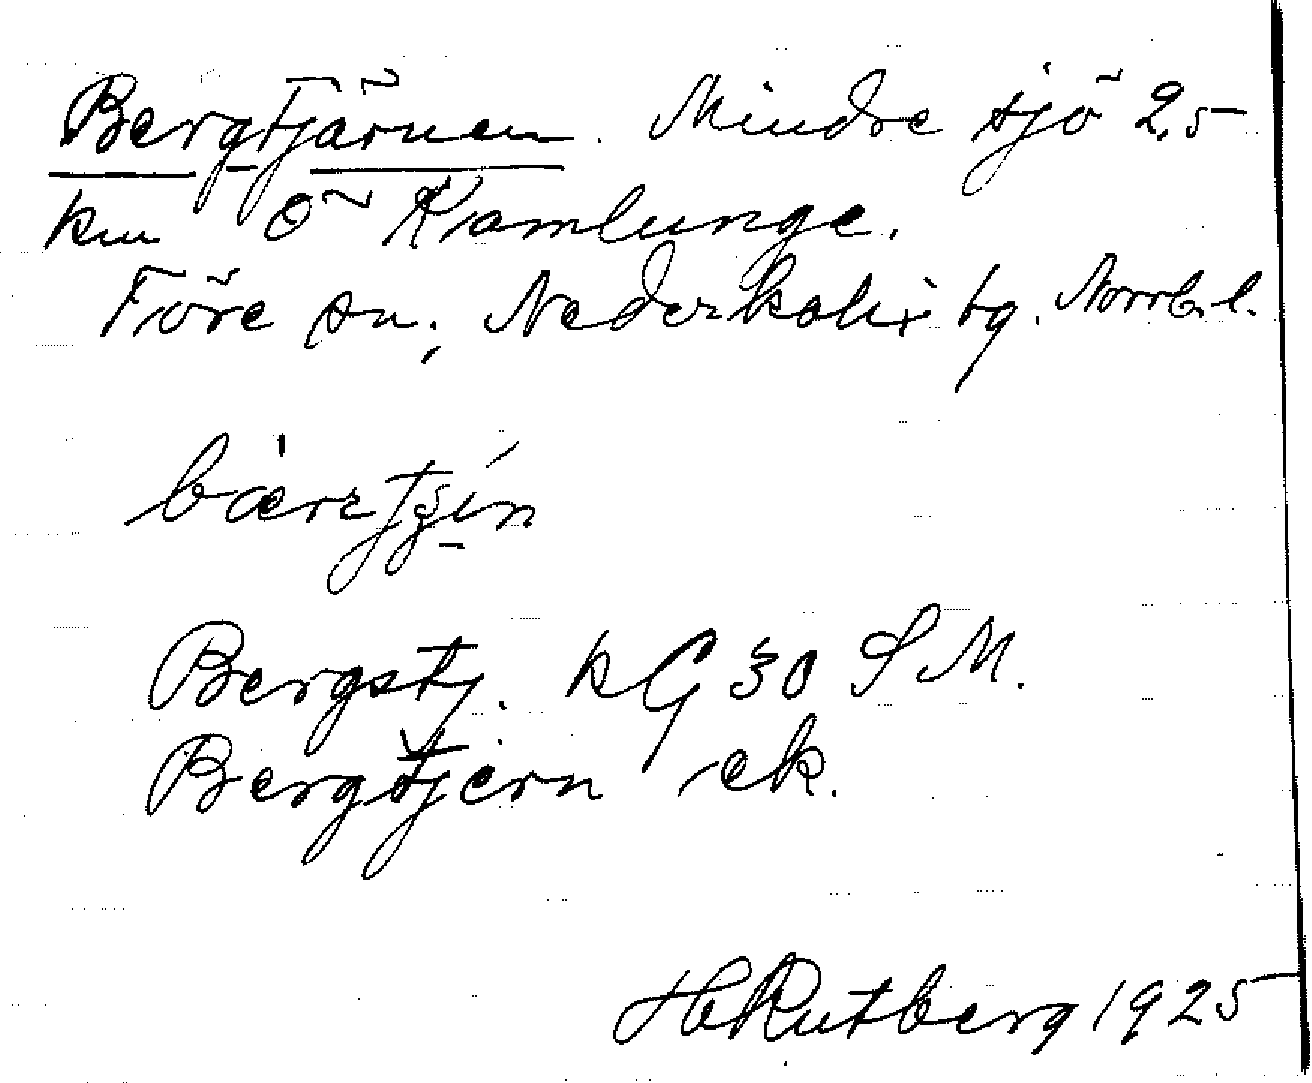 Bergtjärnen. Mindre sjö 2,5
km Ö Kamlunge.
Töre sn; Nederkalix tg. Norrb. l.
Bergstj. kG 30 S M.
Bergtjern ek.
H Rutberg 1925